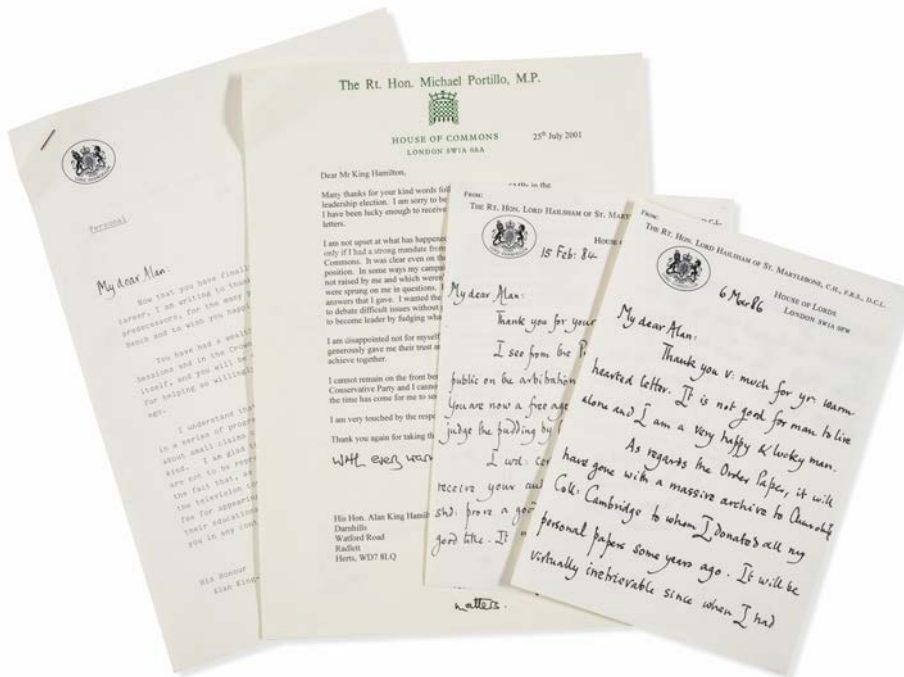 Personal
My dear Alan:
Now that you have finally
career, I am writing to thank
predecessors, for the many
Bench and to wish you happ
You have had a wealth
Sessions and in the Crown
itself, and you will be
for helping so willingly
ago.
I understand that
in a series of progra
about small claims
kind. I am glad
are not to be repe
the fact that, as
the television co
fee for appearing
their education
you in any cont
His Honour
Alan King-
The Rt. Hon. Michael Portillo, M.P.
HOUSE OF COMMONS
LONDON SW1A 0AA
25th July 2001
Dear Mr King Hamilton,
Many thanks for your kind words foll
in the
leadership election. I am sorry to be
I have been lucky enough to receive
letters.
I am not upset at what has happened
only if I had a strong mandate from
Commons. It was clear even on the
position. In some ways my campaig
not raised by me and which weren't
were sprung on me in questions. I
answers that I gave. I wanted the
to debate difficult issues without
to become leader by fudging wha
I am disappointed not for myself
generously gave me their trust an
achieve together.
I cannot remain on the front ben
Conservative Party and I cannot
the time has come for me to s
I am very touched by the respe
Thank you again for taking th
With every war
His Hon. Alan King Hamilt
Darnhills
Watford Road
Radlett
Herts, WD7 8LQ
FROM:
THE RT. HON. LORD HAILSHAM OF ST. MARYLEBO
HOUSE O
15 Feb: 84
My dear Alan:
Thank you for your
I see from the
public on be arbitration
You are now a free age
judge the pudding by
I wd:
receive your
shd: prove a goo
good title. It
matters.
FROM:
THE RT. HON. LORD HAILSHAM OF ST. MARYLEBONE, C.H., F.R.S., D.C.L.
HOUSE OF LORDS
LONDON SW1A 0PW
6 Mar 86
My dear Alan:
Thank you v: much for yr: warm
hearted letter. It is not good for man to live
alone and I am a very happy & lucky man.
As regards the Order Paper, it will
have gone with a massive archive to Churchill
Coll: Cambridge to whom I donated all my
personal papers some years ago. It will be
virtually inetrievable since when I had